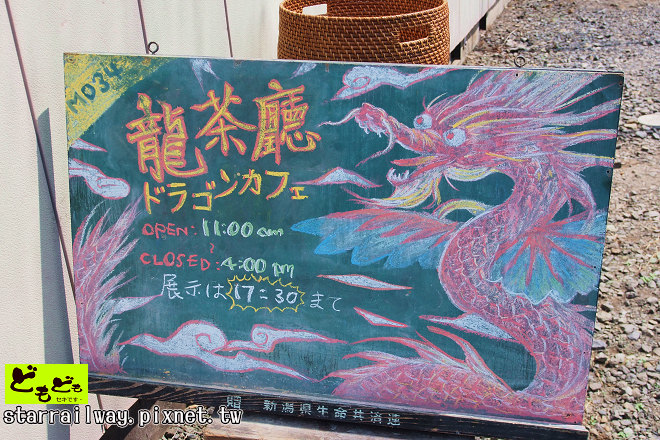 M034
龍茶廳
ドラゴンカフェ
OPEN: 11:00 am
~
CLOSED: 4:00 pm
展示は 17:30 まで
贈 新潟県生命共済連
どもども
セキです~
starrailway.pixnet.tw